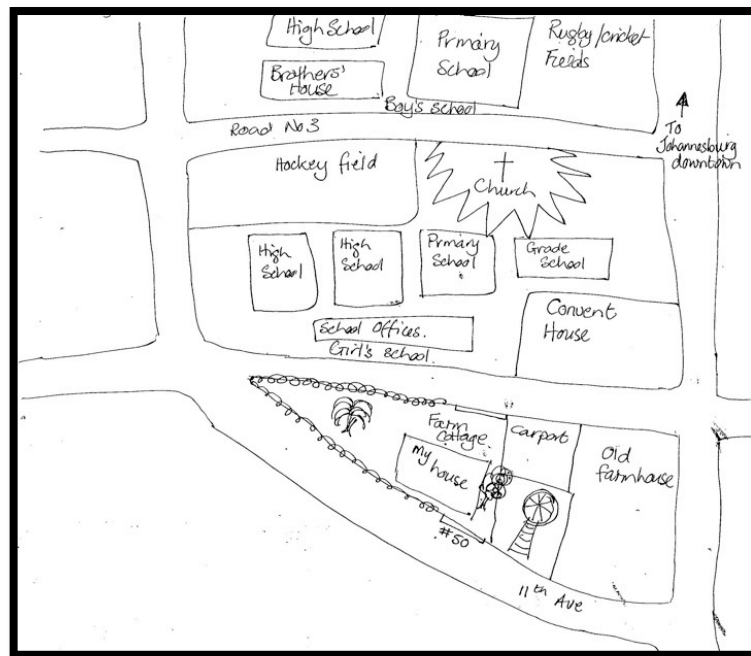 High School
Primary
School
Rugby/cricket
Fields
Brothers'
House
Boy's school
Road No 3
To
Johannesburg
downtown
Hockey field
Church
High
School
High
School
Primary
School
Grade
School
School Offices.
Girl's school.
Convent
House
Farm
Cottage
Carport
My
house
Old
farmhouse
#50
11th Ave